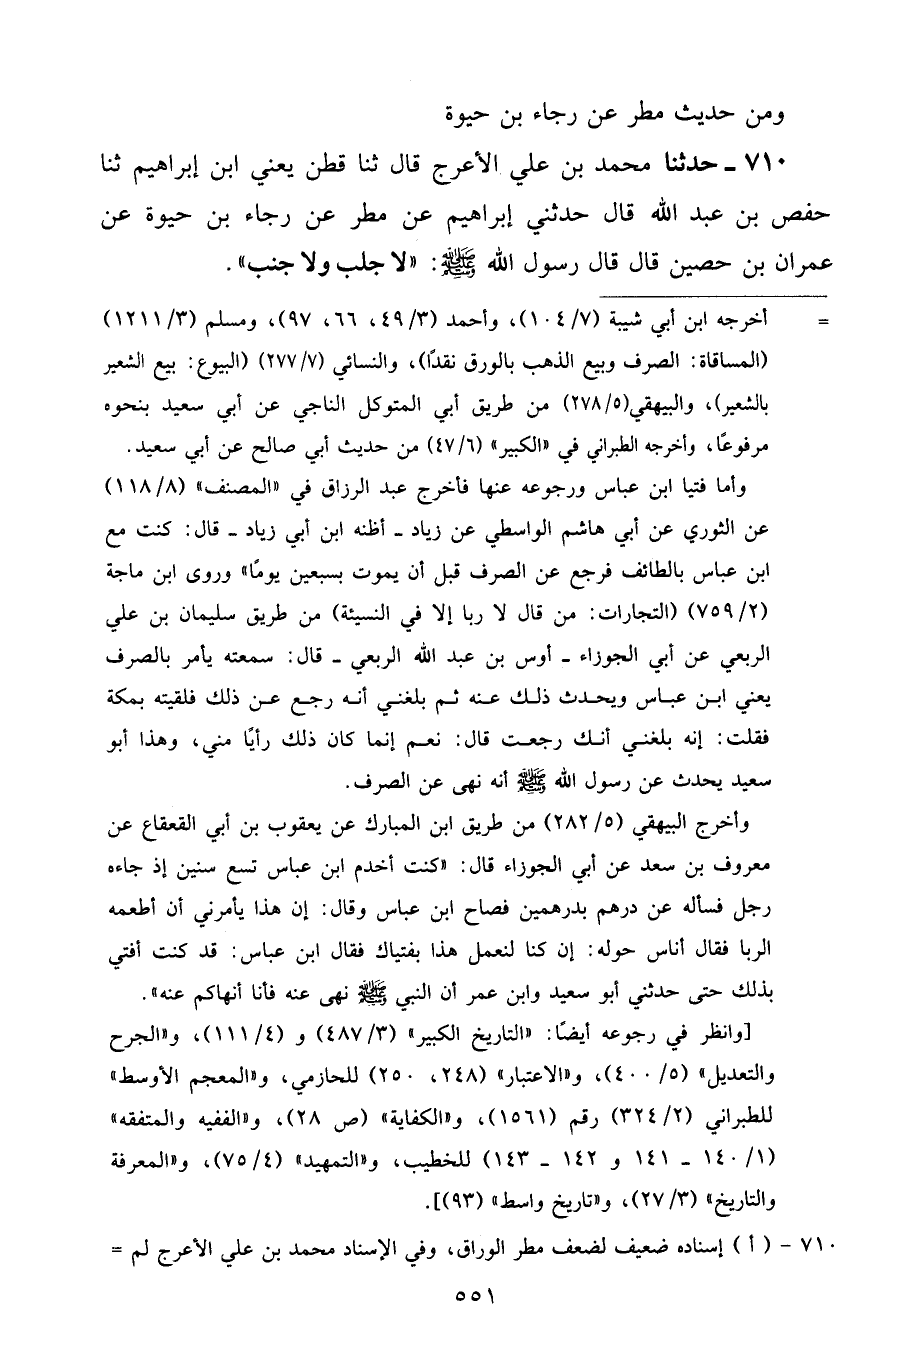 ومن حديث مطر عن رجاء بن حيوة
٧١٠ ـ حدثنا محمد بن علي الأعرج قال ثنا قطن يعني ابن إبراهيم ثنا
حفص بن عبد الله قال حدثني إبراهيم عن مطر عن رجاء بن حيوة عن
عمران بن حصين قال قال رسول الله ﷺ: «لا جلب ولا جنب».
= أخرجه ابن أبي شيبة (١٠٤/٧)، وأحمد (٤٩/٣، ٦٦، ٩٧)، ومسلم (١٢١١/٣)
(المساقاة: الصرف وبيع الذهب بالورق نقدًا)، والنسائي (٢٧٧/٧) (البيوع: بيع الشعير
بالشعير)، والبيهقي(٢٧٨/٥) من طريق أبي المتوكل الناجي عن أبي سعيد بنحوه
مرفوعًا، وأخرجه الطبراني في «الكبير» (٤٧/٦) من حديث أبي صالح عن أبي سعيد.
وأما فتيا ابن عباس ورجوعه عنها فأخرج عبد الرزاق في «المصنف» (١١٨/٨)
عن الثوري عن أبي هاشم الواسطي عن زياد ـ أظنه ابن أبي زياد ـ قال: كنت مع
ابن عباس بالطائف فرجع عن الصرف قبل أن يموت بسبعين يومًا» وروى ابن ماجة
(٧٥٩/٢) (التجارات: من قال لا ربا إلا في النسيئة) من طريق سليمان بن علي
الربعي عن أبي الجوزاء ـ أوس بن عبد الله الربعي ـ قال: سمعته يأمر بالصرف
يعني ابن عباس ويحدث ذلك عنه ثم بلغني أنه رجع عن ذلك فلقيته بمكة
فقلت: إنه بلغني أنك رجعت قال: نعم إنما كان ذلك رأيًا مني، وهذا أبو
سعيد يحدث عن رسول الله ﷺ أنه نهى عن الصرف.
وأخرج البيهقي (٢٨٢/٥) من طريق ابن المبارك عن يعقوب بن أبي القعقاع عن
معروف بن سعد عن أبي الجوزاء قال: «كنت أخدم ابن عباس تسع سنين إذ جاءه
رجل فسأله عن درهم بدرهمين فصاح ابن عباس وقال: إن هذا يأمرني أن أطعمه
الربا فقال أناس حوله: إن كنا لنعمل هذا بفتياك فقال ابن عباس: قد كنت أفتي
بذلك حتى حدثني أبو سعيد وابن عمر أن النبي ﷺ نهى عنه فأنا أنهاكم عنه».
[وانظر في رجوعه أيضًا: «التاريخ الكبير» (٤٨٧/٣) و (١١١/٤)، و«الجرح
والتعديل» (٤٠٠/٥)، و«الاعتبار» (٢٤٨، ٢٥٠) للحازمي، و«المعجم الأوسط»
للطبراني (٣٢٤/٢) رقم (١٥٦١)، و«الكفاية» (ص ٢٨)، و«الفقيه والمتفقه»
(١٤٠/١ ـ ١٤١ و ١٤٢ ـ ١٤٣) للخطيب، و«التمهيد» (٧٥/٤)، و«المعرفة
والتاريخ» (٢٧/٣)، و«تاريخ واسط» (٩٣)].
٧١٠ - (أ) إسناده ضعيف لضعف مطر الوراق، وفي الإسناد محمد بن علي الأعرج لم =
٥٥١